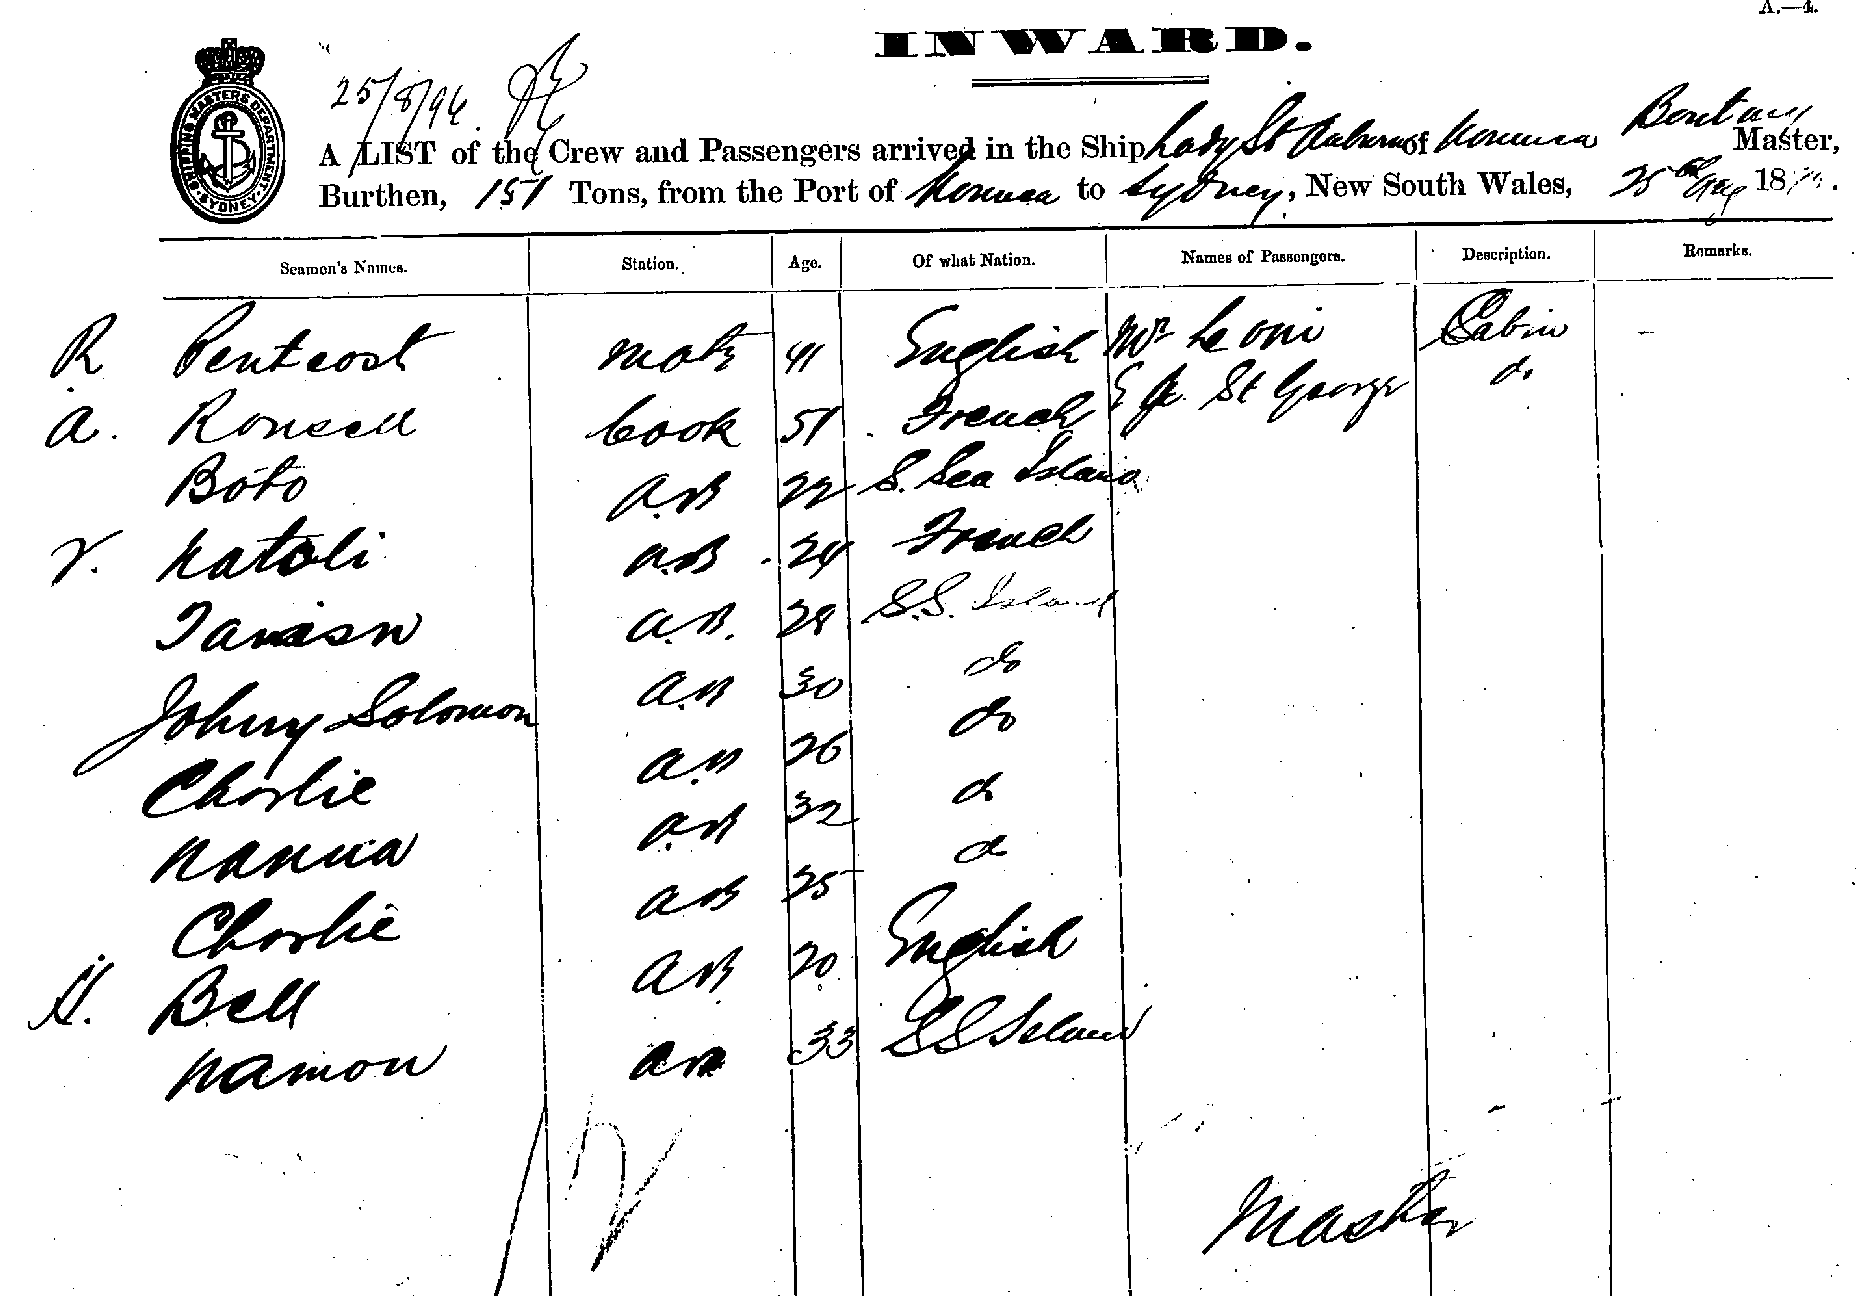 A.—4.
INWARD.
25/8/96.
SHIPPING MASTERS DEPARTMENT SYDNEY
A LIST of the Crew and Passengers arrived in the Ship Lady St of Noumea Master,
Burthen, 151 Tons, from the Port of Noumea to Sydney, New South Wales, 25th Aug 18
Seamen's Names. Station. Age. Of what Nation. Names of Passengers. Description. Remarks.
R Pentcost Mate 41 English Mr Leoni Cabin -
E St George do
A. Rousell Cook 51 French
Boto A.B 22 S. Sea Island
V. Natoli A.B 24 French
A.B. 28 S.S. Island
Johny Solomon A.B 30 do
Charlie A.B 26 do
Nanua A.B 32 do
Charlie A.B 25 do
H. Bell A.B 20 English
Namon A.B 33 S S Island
12
Master